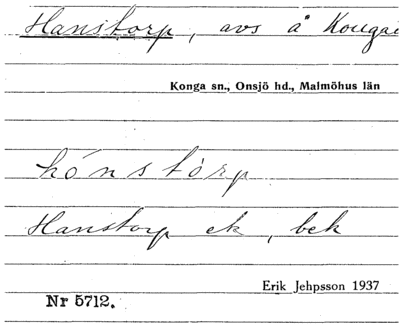 Hanstorp, avs å Konga
Konga sn., Onsjö hd., Malmöhus län
hónstòrp
Hanstorp ek, bek
Erik Jehpsson 1937
Nr 5712.